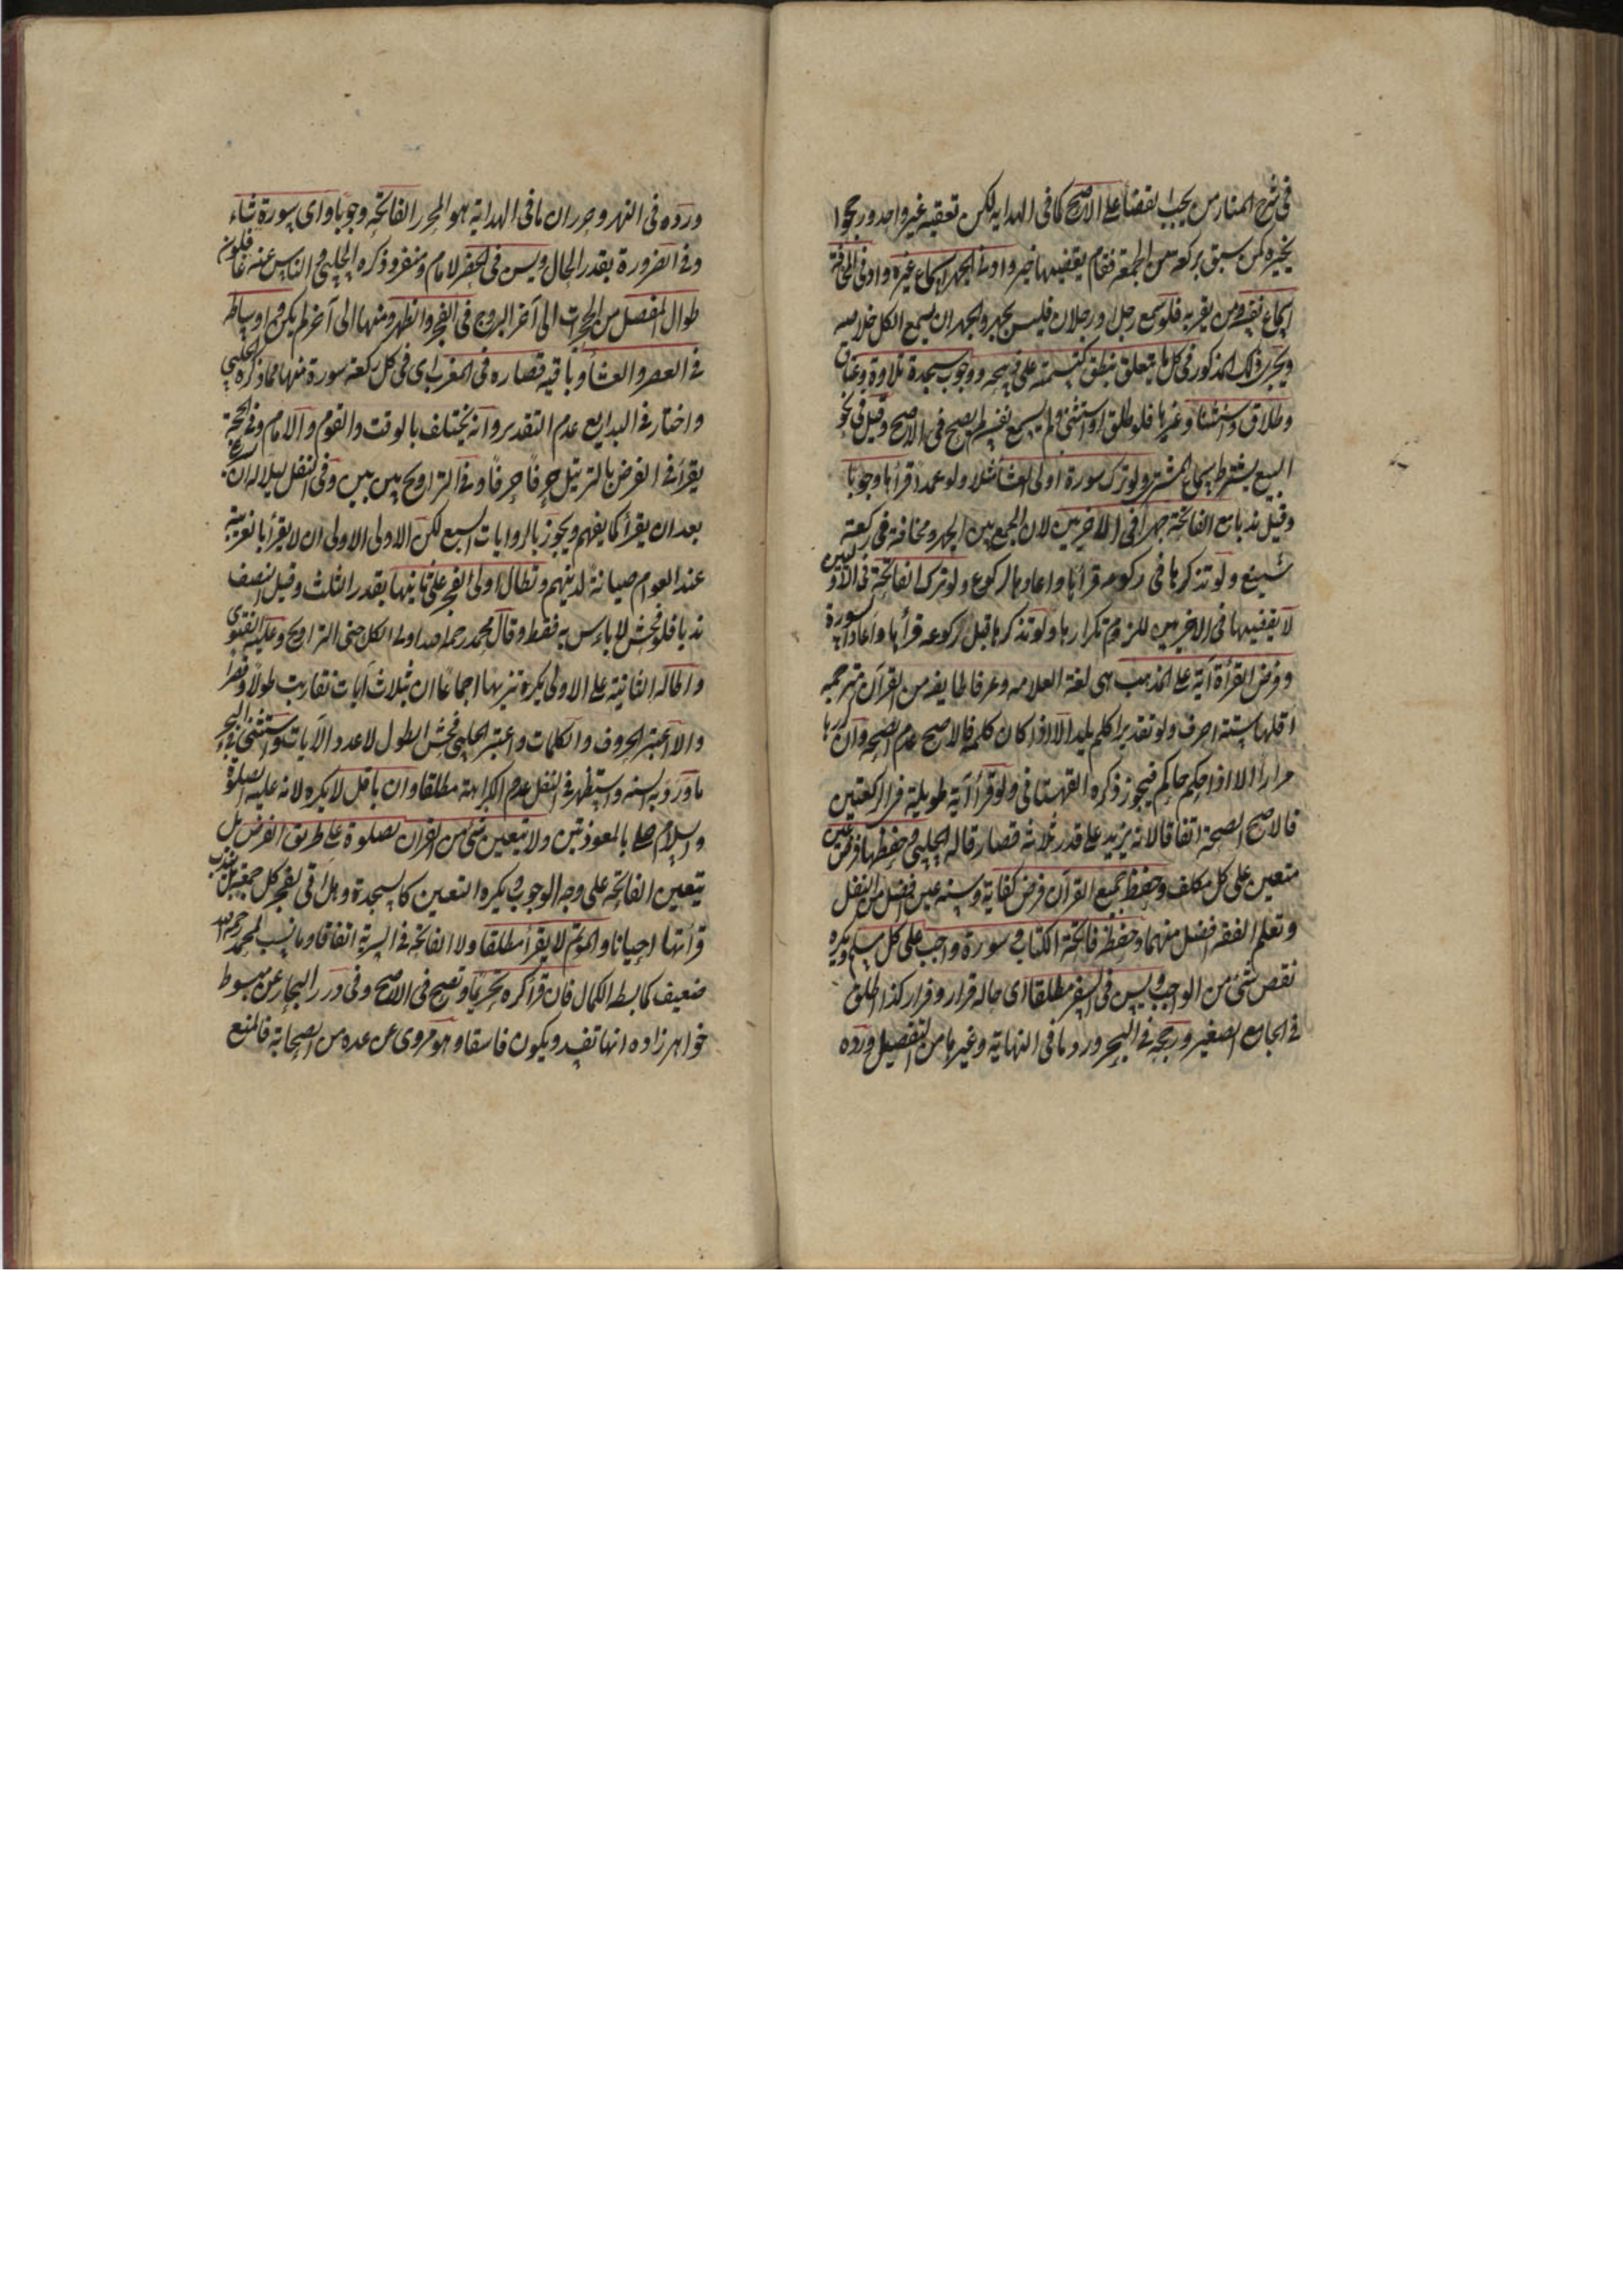 في شرح المنار من بحث القضاء على الاصح كما في الهدايه لكن تعقبه غير واحد ورجحوا
تخييره كمن سبق بركعة من الجمعة فقام يقضيها خير وادنى الجهر اسماع غيره وادنى المخافتة
اسماع نفسه ومن يقربه فلو سمع رجل او رجلان فليس بجهر والجهر ان يسمع الكل خلاصه
ويجري ذلك المذكور في كل ما يتعلق بنطق كتسمية على ذبيحه ووجوب سجدة تلاوة وعتاق
وطلاق واستثناء وغيرها فلو طلق او استثنى ولم يسمع نفسه لم يصح في الاصح وقيل في نحو
البيع يشترط سماع المشتري ولو ترك سورة اولى العشاء مثلا ولو عمدا قرأها وجوبا
وقيل ندبا مع الفاتحة جهرا في الاخريين لان الجمع بين الجهر ومخافتة في ركعة
شنيع ولو تذكرها في ركوعه قرأها واعاد الركوع ولو ترك الفاتحة في الاوليين
لا يقضيها في الاخريين للزوم تكرارها ولو تذكرها قبل ركوعه قرأها واعاد السورة
وفرض القرأة آية على المذهب هي لغة العلامه وعرفا طايفه من القرآن مترجمه
اقلها ستة احرف ولو تقديرا كلم يلد الا اذا كان كلمة فالاصح عدم الصحه وان كررها
مرارا الا اذا حكم حاكم فيجوز ذكره القهستاني ولو قرأ آية طويلة في الركعتين
فالاصح الصحة اتفاقا لانه يزيد على قدر ثلاثة قصار قاله الحلبي وحفظها فرض عين
متعين على كل مكلف وحفظ جميع القرآن فرض كفاية وسنة عين افضل من النفل
وتعلم الفقه افضل منهما وحفظ فاتحة الكتاب وسورة واجب على كل مسلم ويكره
نقص شئ من الواجب ويسن في السفر مطلقا اى حاله قرار وفرار كذا اطلق
في الجامع الصغير ورجحه في البحر ورد ما في النهاية وغيرها من التفصيل ورده
ورده في النهر وحرر ان ما في الهداية هو المحرر الفاتحه وجوبا واى سورة شاء
وفي الضرورة بقدر الحال ويسن في الحضر لامام ومنفرد ذكره الحلبي والناس عنه غافلون
طوال المفصل من الحجرات الى آخر البروج في الفجر والظهر ومنها الى آخر لم يكن واوساطه
في العصر والعشاء وباقيه قصاره في المغرب اى في كل ركعة سورة منها مما ذكره الحلبي
واختار في البدايع عدم التقدير وانه يختلف بالوقت والقوم والامام وفي الحجة
يقرأ في الفرض بالترتيل حرفا حرفا وفي التراويح بين بين وفي النفل ليلا له ان يسرع
بعد ان يقرأ كما يفهم ويجوز بالروايات السبع لكن الاولى الاولى ان لا يقرأ بالغريبة
عند العوام صيانة لدينهم وتطال اولى الفجر على ثانيتها بقدر الثلث وقيل النصف
ندبا فلو فحش لا باس به فقط وقال محمد رحمه الله اولى الكل حتى التراويح وعليه الفتوى
واطالة الثانية على الاولى يكره تنزيها اجماعا ان بثلاث آيات ان تقاربت طولا وقصرا
والا اعتبر الحروف والكلمات واعتبر الحلبي فحش الطول لا عدد الآيات واستثنى في البحر
ما ورد به السنه واستظهر في النفل عدم الكراهة مطلقا وان باقل لا يكره لانه عليه الصلوة
والسلام صلى بالمعوذتين ولا يتعين شئ من القرآن لصلوة على طريق الفرض بل
يتعين الفاتحه على وجه الوجوب ويكره التعيين كالسجدة وهل اتى لفجر كل جمعة بل يندب
قرأتهما احيانا والمؤتم لا يقرأ مطلقا ولا الفاتحة في السرية اتفاقا وما نسب لمحمد رحمه الله
ضعيف كما بسطه الكمال فان قرأ كره تحريما وتصح في الاصح وفي درر البحار عن مبسوط
خواهر زاده انها تفسد ويكون فاسقا وهو مروى عن عدة من الصحابة فالمنع